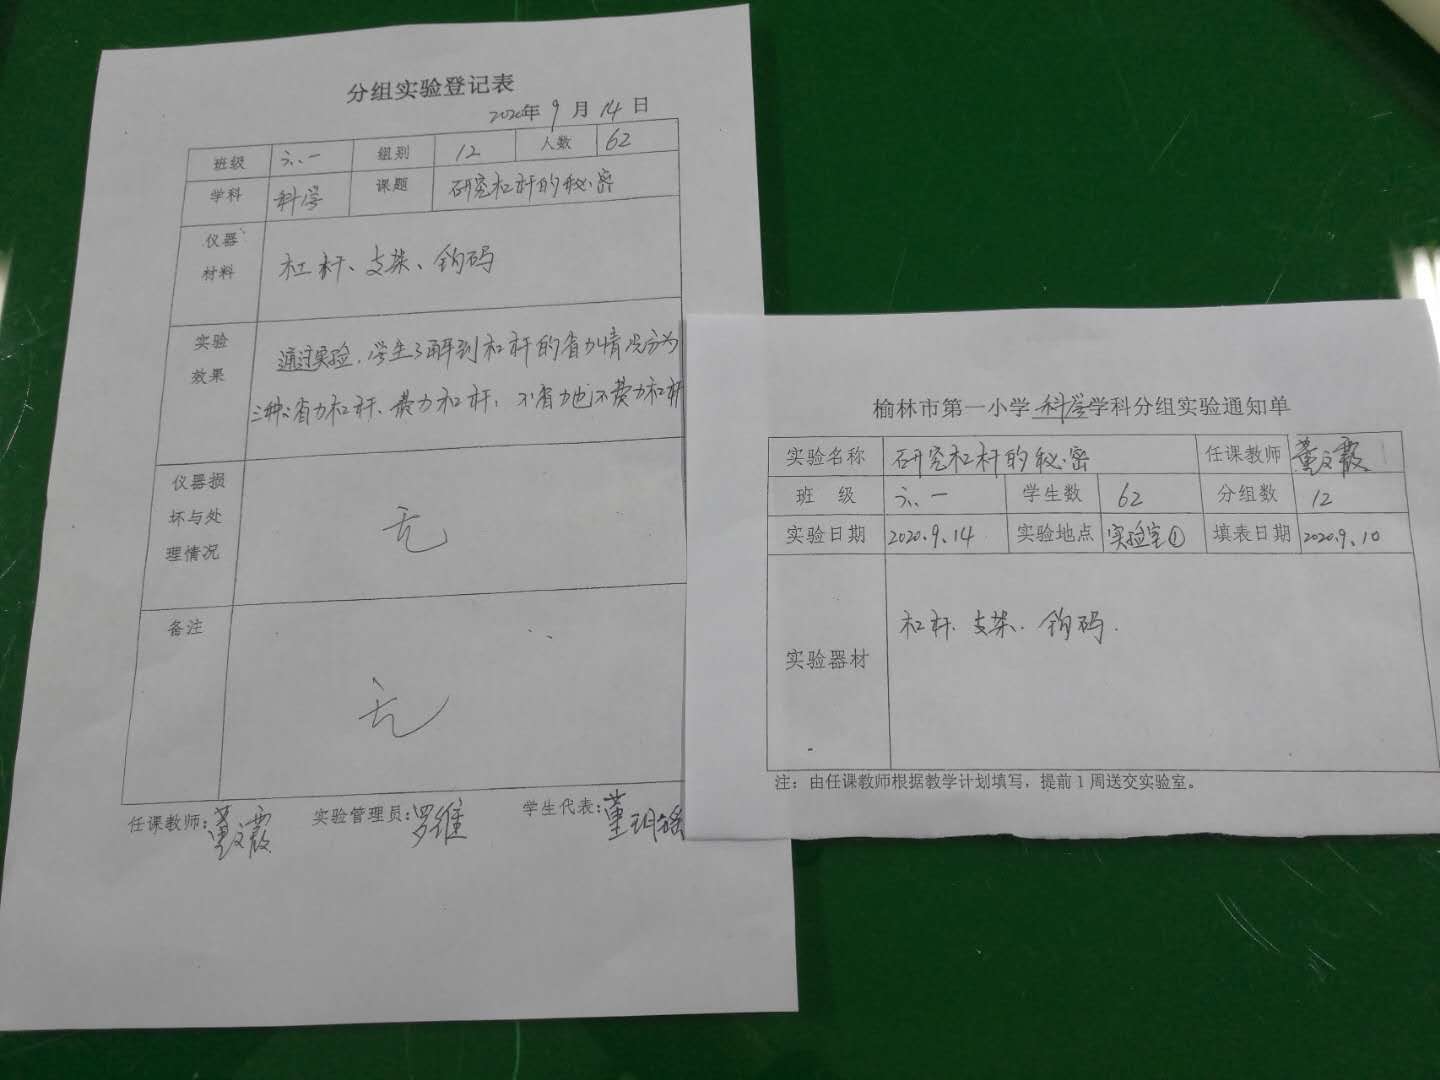 分组实验登记表
2020年 9 月 14 日
班级 六、一 组别 12 人数 62
学科 科学 课题 研究杠杆的秘密
仪器
材料
杠杆、支架、钩码
实验
效果
通过实验，学生了解到杠杆的省力情况分为
三种：省力杠杆、费力杠杆，不省力也不费力杠杆
仪器损
坏与处
理情况
无
备注
无
任课教师：董文霞 实验管理员：罗维 学生代表：董玥
榆林市第一小学 科学 学科分组实验通知单
实验名称 研究杠杆的秘密 任课教师 董文霞
班 级 六、一 学生数 62 分组数 12
实验日期 2020.9.14 实验地点 实验室① 填表日期 2020.9.10
实验器材 杠杆、支架、钩码.
注：由任课教师根据教学计划填写，提前1周送交实验室。